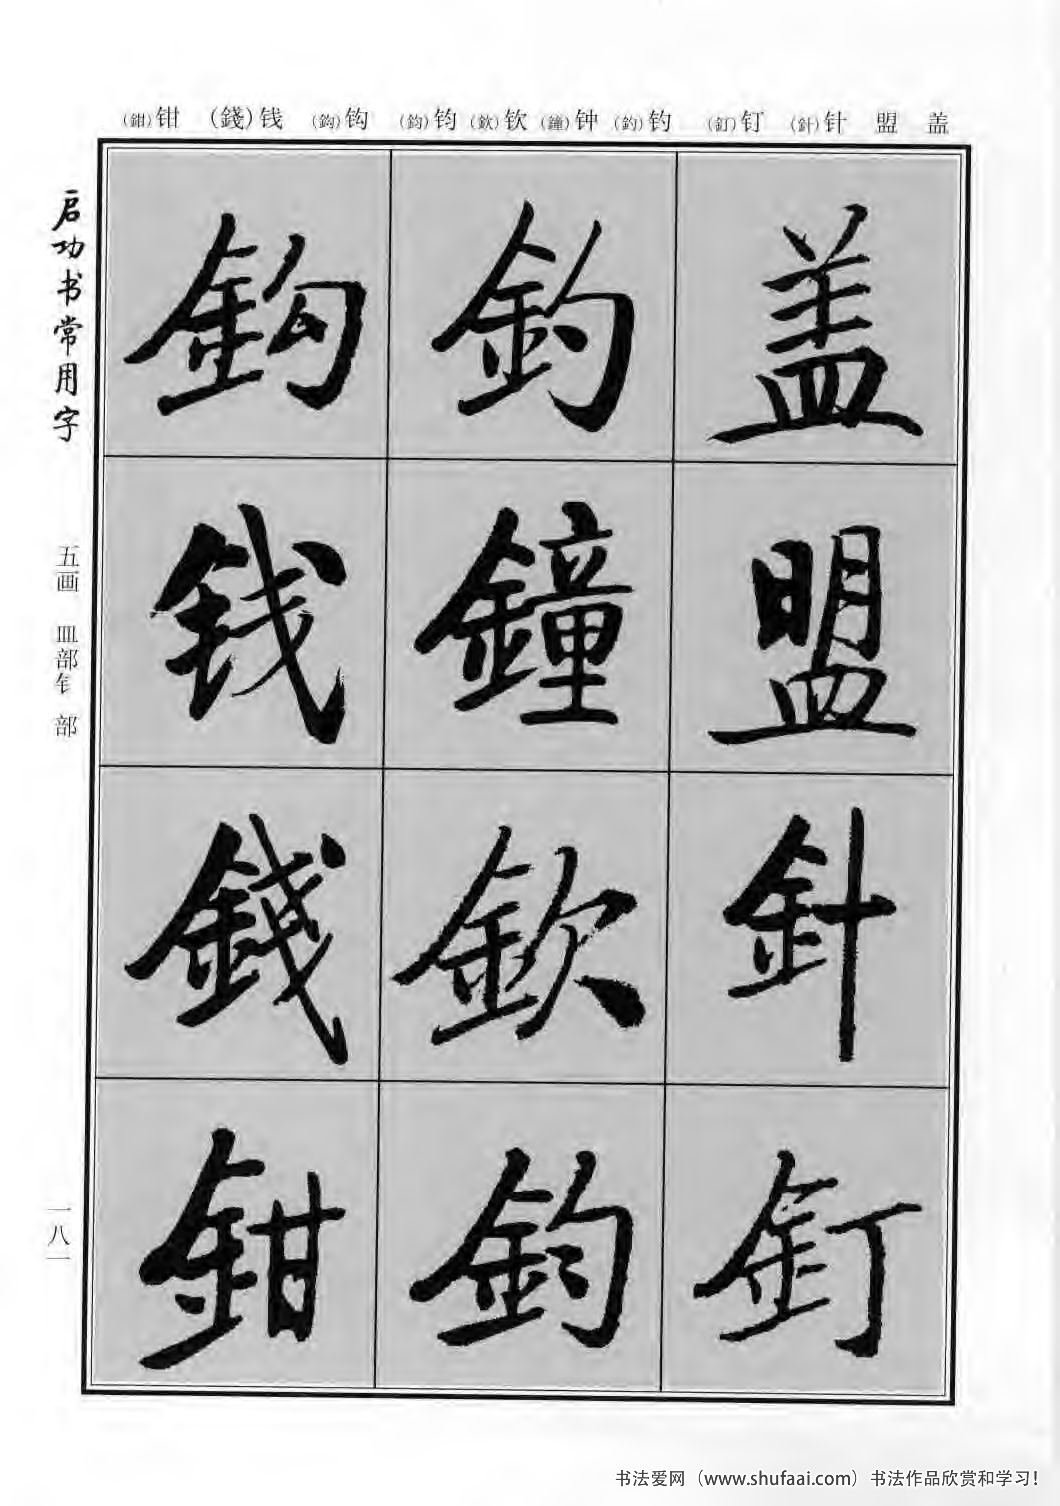 (鉗)钳 (錢)钱 (鈎)钩 (鈞)钧 (欽)钦 (鐘)钟 (釣)钓 (釘)钉 (針)针 盟 盖
启功书常用字
五画 皿部钅部
一八一
盖
盟
針
釘
釣
鐘
欽
鈞
鈎
钱
錢
鉗
书法爱网（www.shufaai.com）书法作品欣赏和学习！